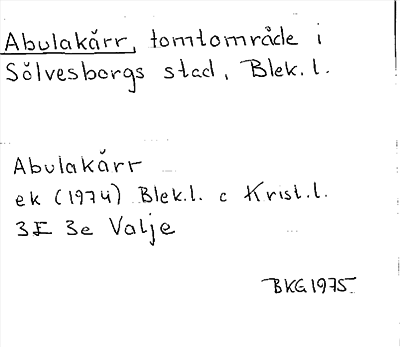 Abulakårr, tomtområde i
Sölvesborgs stad, Blek.l.
Abulakårr
ek (1974) Blek.l. c Krist.l.
3E 3e Valje
BKG 1975